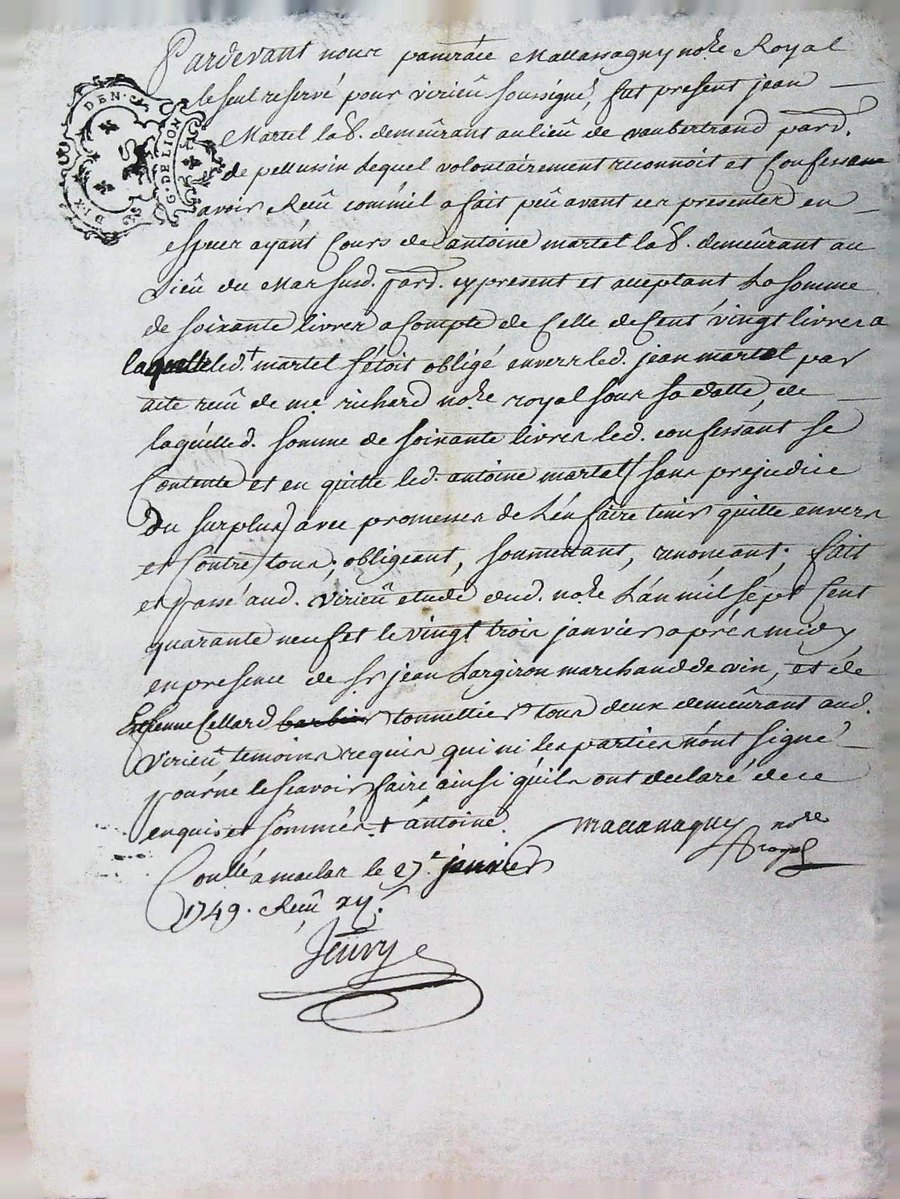 DIX DEN. G. DE LION
Pardevant nous pancrace Mallassagny nore Royal
le seul reservé pour virieû soussigné, fut present jean
Martel lab. demeûrant au lieû de vaubertrand pard.
de pellussin lequel volontairement reconnoit et Confesse
avoir Reçû comm'il a fait peû avant ces presentes en
especes ayánt Cours de antoine martel lab. demeûrant au
Lieû du Mas susd. pard. cy present et aceptant La somme
de soixante livres a Compte de Celle de Cent vingt livres a
laquelle led. + martel s'étoit obligé envers led. jean martel par
acte reçû de me richard nore royal sous sa datte, de
laquelled. somme de soixante livres led. confessant se
Contente et en quitte led. antoine martel (sans prejudice
Du surplus) avec promesses de L'en faire tenir quitte envers
et Contre tous; obligeant, soumettant, renonceant; fait
et passé aud. virieû etude dud. nore L'an mil sept Cent
quarante neuf et le vingt trois janvier aprés midy
en presence de sr jean Largiron marchand de vin, et de
Estienne Cellard barbier tonnellier tous deux demeûrant aud.
virieû temoins requis qui ni les parties n'ont signé
pour ne le sçavoir faire ainsi qu'ils ont declaré de ce
enquis et sommés + ántoine. mallassagny nore
royal
Conllé a maclas le 27e janvier
1749. Reçû xy s.
Jeûry